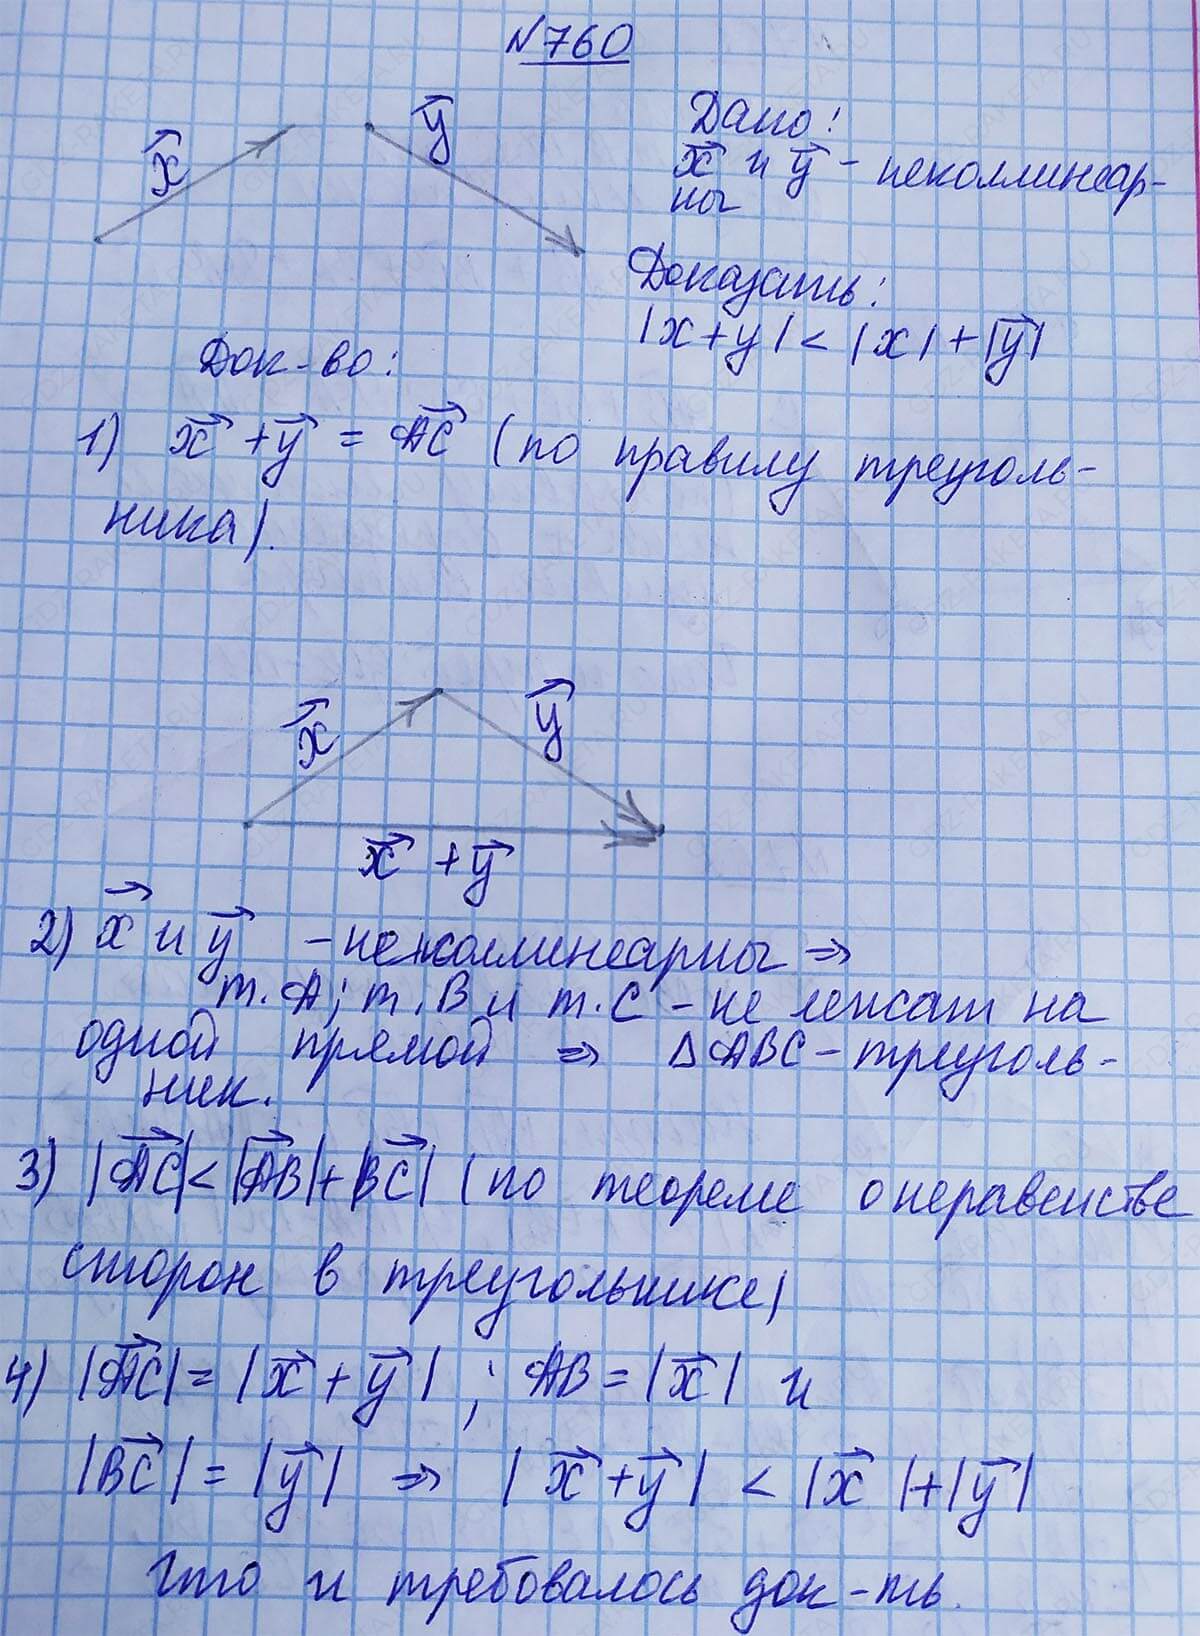 №760
x⃗
y⃗
Дано:
x⃗ и y⃗ - неколлинеар-
ны
Доказать:
|x+y| < |x| + |y⃗|
Док-во:
1) x⃗ + y⃗ = AC⃗ (по правилу треуголь-
ника).
x⃗
y⃗
x⃗ + y⃗
2) x⃗ и y⃗ - неколлинеарны ⇒
т. A; т. B и т. C - не лежат на
одной прямой ⇒ ΔABC - треуголь-
ник.
3) |AC⃗| < |AB⃗| + |BC⃗| (по теореме о неравенстве
сторон в треугольнике)
4) |AC⃗| = |x⃗ + y⃗| ; AB = |x⃗| и
|BC⃗| = |y⃗| ⇒ |x⃗ + y⃗| < |x⃗| + |y⃗|
Что и требовалось док-ть.